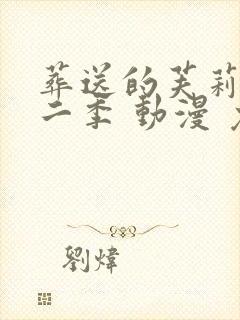 葬送的芙莉
二季 動漫
劉煒